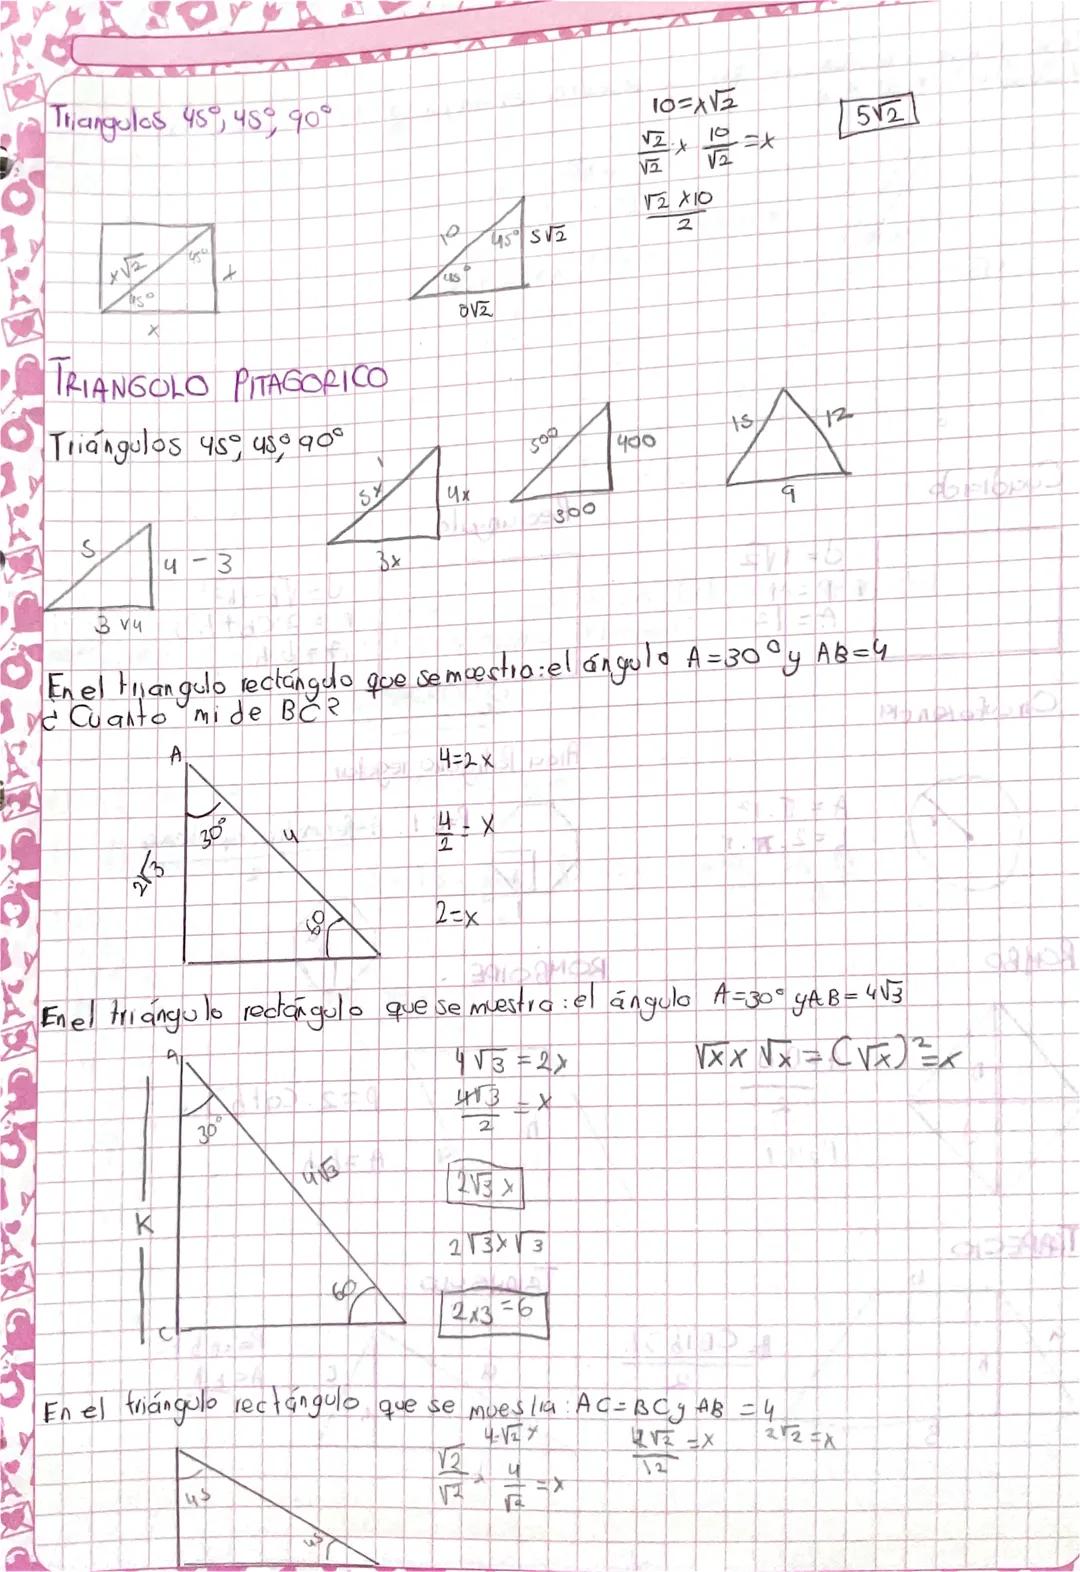 Triangulos 45°, 45°, 90°
10=x√2
√2/√2 x 10/√2 =x
√2 x10/2
5√2
x√2
45°
45°
x
x
10
45°
45°
5√2
TRIANGULO PITAGORICO
Triángulos 45°, 45° 90°
5
4 - 3
3 v4
5x
4x
3x
500
400
300
15
12
9
En el triangulo rectángulo que se muestra: el ángulo A=30° y AB=4
¿Cuanto mide BC?
A
30°
4
2√3
60
4=2x
4/2 = x
2=x
En el triángulo rectángulo que se muestra: el ángulo A=30° y AB=4√3
30°
4√3
K
60
C
4√3 =2x
4√3/2 =x
2√3 x
2√3x√3
2x3=6
√x x √x = (√x)²=x
En el triángulo rectángulo que se muestra: AC=BC y AB =4
4=√2 x
√2/√2 x 4/√2 =x
2√2=x
45
45